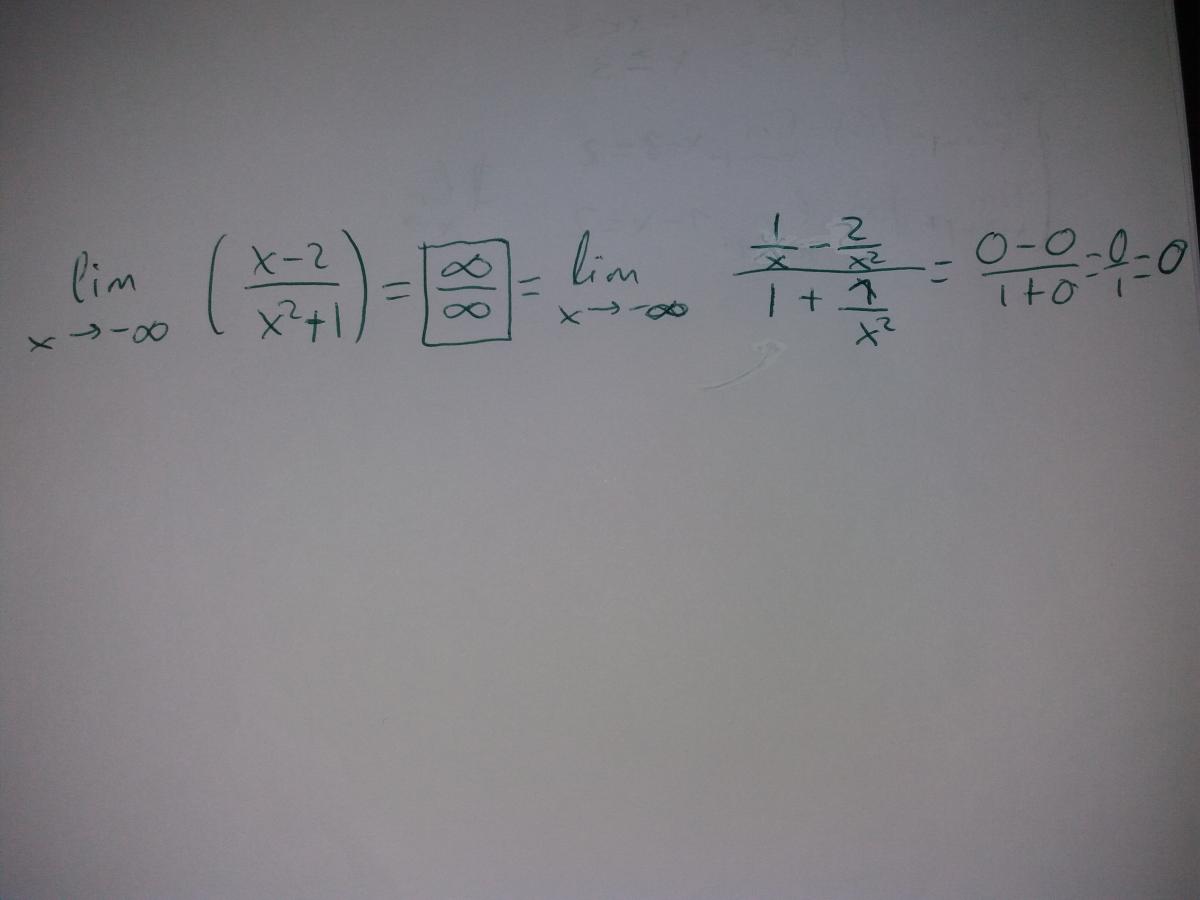 lim x→-∞ ( (x-2)/(x²+1) ) = [∞/∞] = lim x→-∞ (1/x - 2/x²)/(1 + 1/x²) = (0-0)/(1+0) = 0/1 = 0